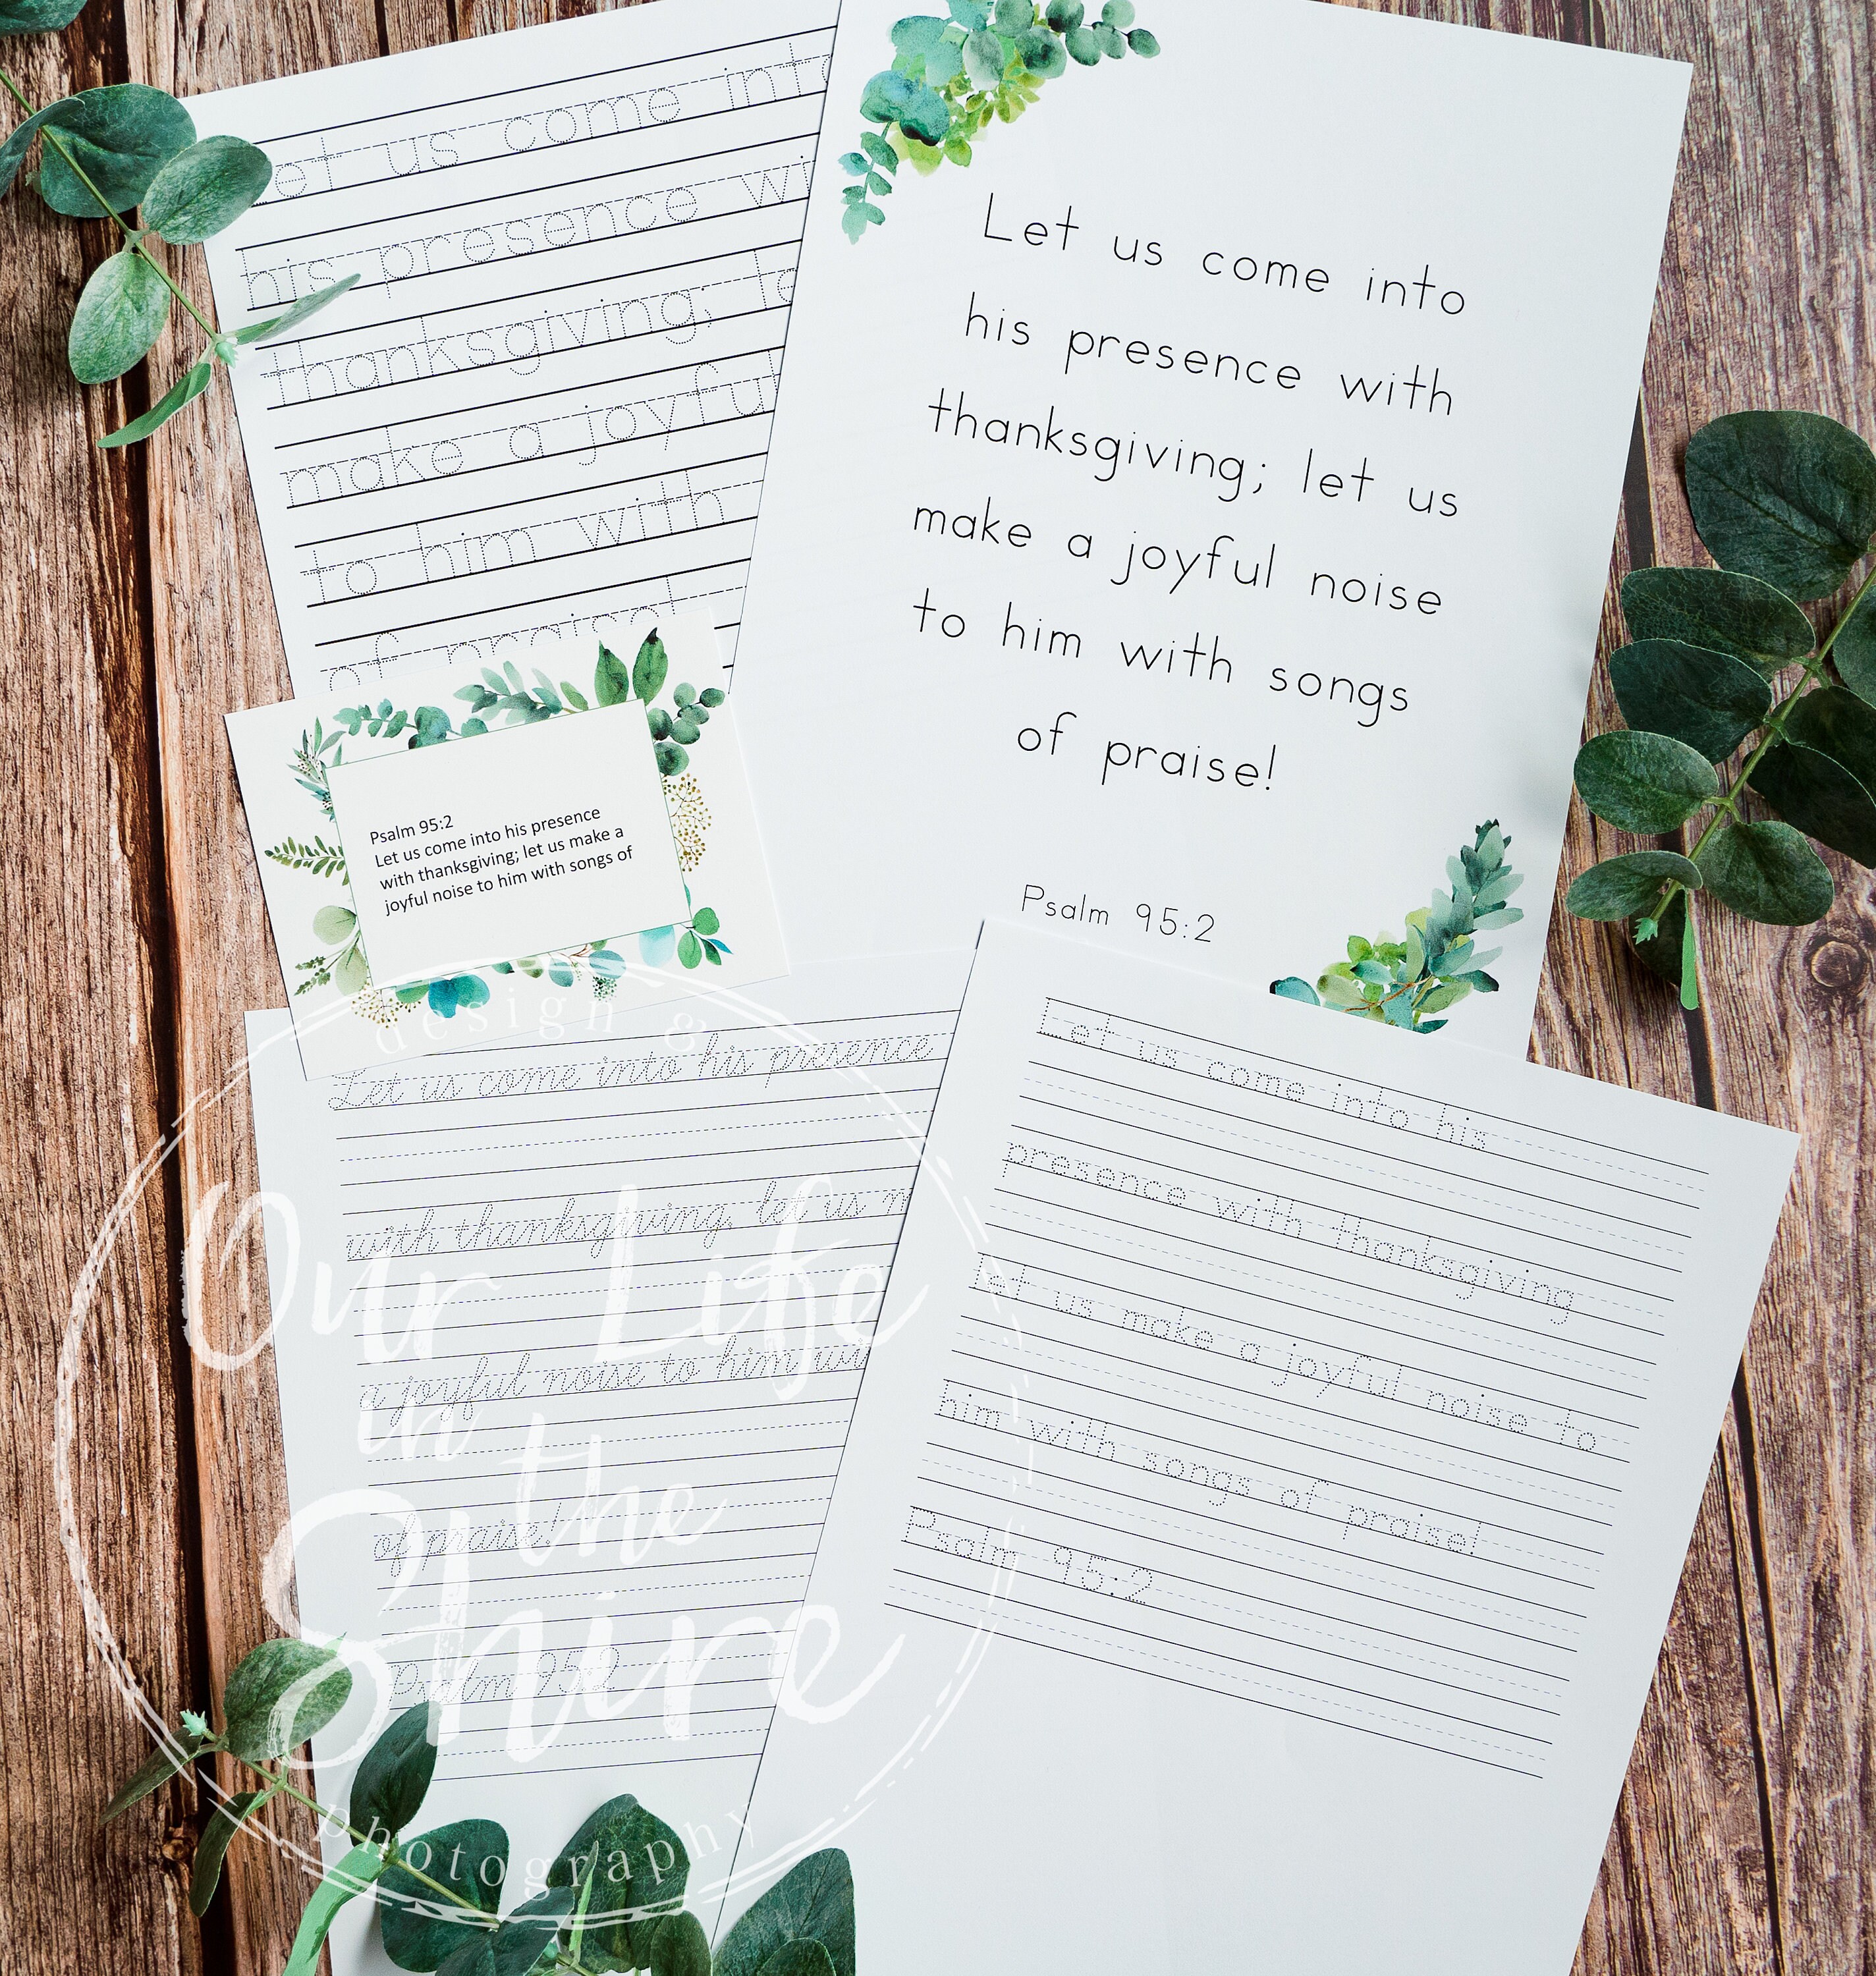 Let us come into
his presence wi
thanksgiving; le
make a joyful
to him with
of praise!
Let us come into
his presence with
thanksgiving; let us
make a joyful noise
to him with songs
of praise!
Psalm 95:2
Psalm 95:2
Let us come into his presence
with thanksgiving; let us make a
joyful noise to him with songs of
Let us come into his presence
with thanksgiving; let us m
a joyful noise to him wi
of praise!
Psalm 95:2
Let us come into his
presence with thanksgiving
let us make a joyful noise to
him with songs of praise!
Psalm 95:2
design &
Our Life
in the
Shire
photography